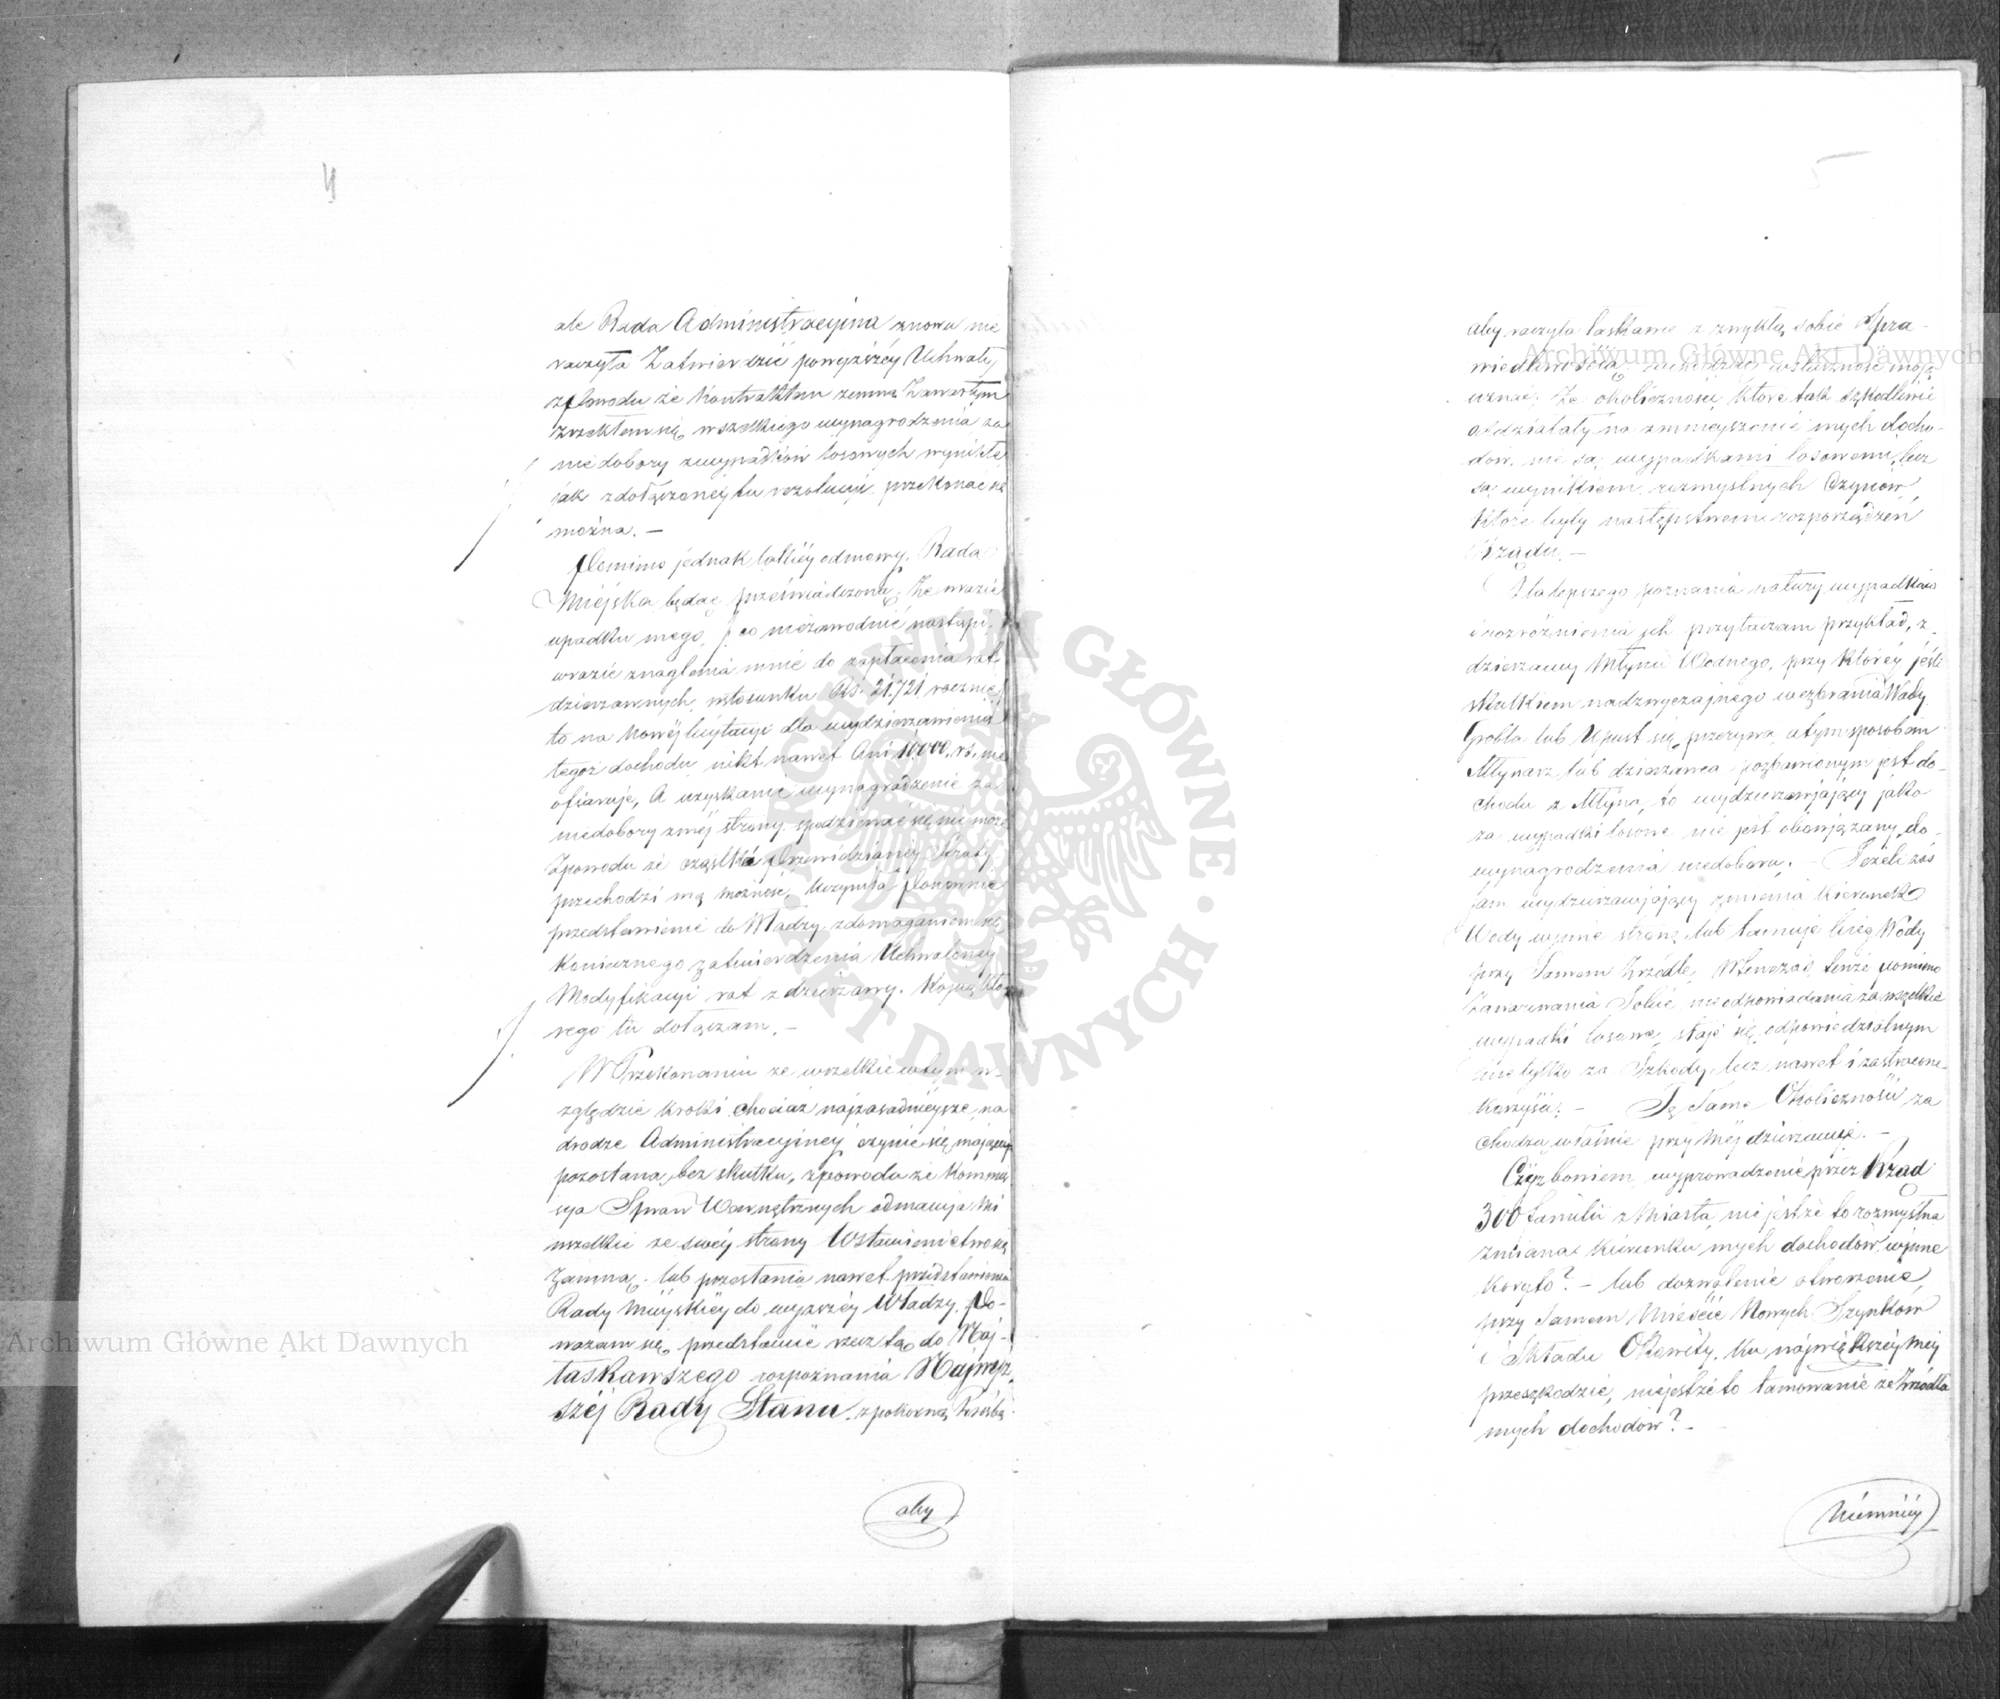 4
ale Rada Administracyina znowu nie
raczyła Zatwierdzić powyższéy Uchwały
z powodu że kontraktem zemną zawartym
zrzekłem się wszelkiego wynagrodzenia za
niedobory z wypadków losowych wynikłe
jak z dołączonéy tu rezolucyi przekonać się
można. —
Pomimo jednak takiéy odmowy, Rada
Miejska będąc przeświadczoną, że w razie
upadku mego, co niezawodnie nastąpi,
w razie znaglenia mnie do zapłacenia rat
dzierżawnych w stosunku Rs. 21.721 rocznie
to na nowéj licytacyi dla wydzierżawienia
tegoż dochodu nikt nawet ani 10,000 rs. nie
ofiaruje, A uzyskanie wynagrodzenie za
niedobory z méj strony spodziewać się nie może
Z powodu że cząstka przewidzianey straty
przechodzi mą możność, uczyniła ponownie
przedstawienie do Władzy z domaganiem się
koniecznego zatwierdzenia Uchwalonéy
Modyfikacyi rat z dzierżawy. Kopię któ
rego tu dołączam. —
W Przekonaniu że wszelkie w tym w-
zględzie kroki chociaż najzasadnieysze, na
drodze Administracyjney czynić się mające
pozostaną bez skutku, z powodu że Kommis
sya Spraw Wewnętrznych odmawia mi
wszelkie ze swéy strony Wstawiennictwo
Zamną, lub przesłania nawet przedstawienia
Rady Miejskiéy do wyższéy Władzy. Po-
ważam się przedstawić rzecz tą do Naj-
łaskawszego rozpoznania Najwyż
széj Rady Stanu, z pokorną Prośbą
aby
5
aby raczyła łaskawie z zwykłą sobie Spra-
wiedliwością
uznać, że okoliczności które tak szkodliwie
oddziałały na zmnieyszenie mych docho-
dów, nie są wypadkami losowemi, lecz
są wynikiem rozmyślnych Czynów,
które były następstwem rozporządzeń
Rządu. —
Dla lepszego poznania natury wypadków
i rozróżnienia ich przytaczam przykład, z
dzierżawy Młyna Wodnego, przy któréy jeśli
skutkiem nadzwyczajnego wezbrania Wody
Grobla lub Upust się przerywa, a tym sposobem
Młynarz lub dzierżawca pozbawionym jest do-
chodu z Młyna, to wydzierżawiający jako
za wypadki losowe nie jest obowiązany do
wynagrodzenia niedoboru. — Jeżeli zaś
sam wydzierżawiający zmienia kierunek
Wody w inne stronę lub tamuje bieg Wody
przy Samem Zrzódle, Wtenczas tenże pomimo
zawarowania Sobie nieodpowiadania za wszelkie
wypadki losowe, staje się odpowiedzialnym
nie tylko za Szkody lecz nawet i zastracone
korzyści. — Te Same Okoliczności za
chodzą właśnie przy Méj dzierżawie. —
Czyż bowiem wyprowadzenie przez Rząd
300 familii z Miasta, nie jestże to rozmyślna
zmiana Kierunku mych dochodów w inne
Koryto? — lub dozwolenie otworzenie
przy Samem Mieście Nowych Szynków
i Składu Okowity, ku największéy méj
przeszkodzie, niejestże to tamowanie ze źrzódła
mych dochodów? —
Niemniéy
Archiwum Główne Akt Dawnych
Archiwum Główne Akt Dawnych
ARCHIWUM GŁÓWNE AKT DAWNYCH